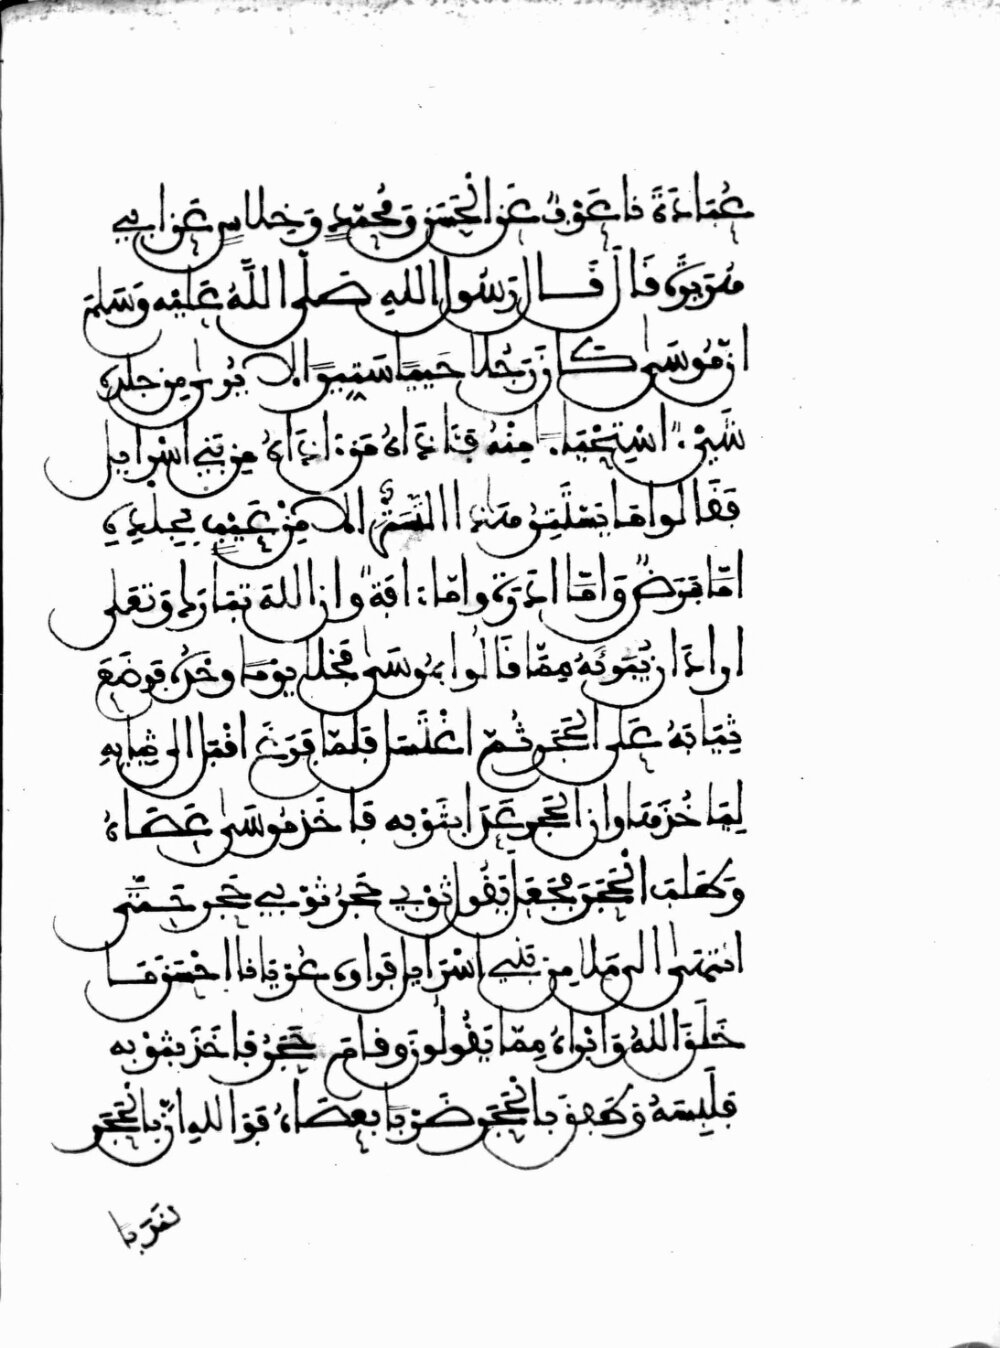 عُبَادَةَ نا عَوْفٌ عَنِ الْحَسَنِ وَمُحَمَّدٍ وَخِلَاسٍ عَنْ ابِي
هُرَيْرَةَ قَالَ قَالَ رَسُولُ اللهِ صَلَّى اللَّهُ عَلَيْهِ وَسَلَّمَ
انّ مُوسَى كَانَ رَجُلًا حَيِيًّا سَتِيرًا لا يُرَى مِن جِلْدِهِ
شَيْءٌ اسْتِحْيَاءً مِنْهُ فَئَاذَاهُ مَنَ اذَاهُ مِن بَنِي اسْرَايِلَ
فَقَالُوا مَا يَسْتَتِرُ هَذَا التَّسَتُّرَ الا مِنْ عَيْبٍ بِجِلْدِهِ
امَّا بَرَصٌ وَامَّا ادْرَةٌ وامّا ءافَةٌ وان اللهَ تبَارَكَ وَتَعَلى
ارادَ ان يُبَرِّئَهُ مِمّا قَالُوا بمُوسَى فَخَلَا يوْمًا وحْدَهُ فَوضَعَ
ثِيَابَهُ عَلَى الحَجَرِ ثُمّ اغْتَسَلَ فَلَمّا فَرَغَ اقْبَلَ الى ثِيَابِهِ
لِيَاخُذهَا وان الحَجَرَ عَدَا بثَوْبِه فَاخَذ مُوسَى عَصَاهُ
وَطَلَبَ الْحَجَرَ فَجَعَلَ يَقُولُ ثَوْبِي حَجَرُ ثَوْبِي حَجَر حَتَّى
انتَهَى الى مَلَإ مِن بَنِي اسْرَايِلَ فَرَاوهُ عُرْيَانًا احْسَنَ مَا
خَلَقَ اللهُ وَابْرَاهُ مِمَّا يَقُولُونَ وقَامَ حَجَرُ فَاخَذَ بثَوْبِه
فَلَبِسَهُ وَطَفِقَ بالْحَجَرِ ضَرْبًا بعَصَاهُ فَوَاللهِ انّ بالْحَجَرِ
لنَدَبًا